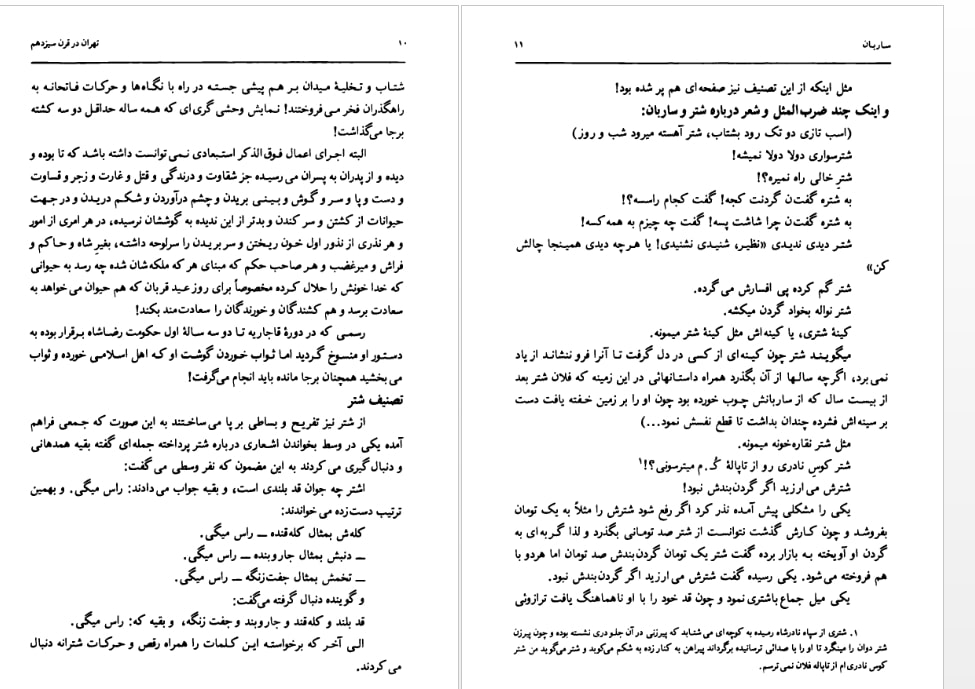 تهران در قرن سیزدهم
۱۰
شتاب و تخلیهٔ میدان بر هم پیشی جسته در راه با نگاه‌ها و حرکات فاتحانه به
راهگذران فخر می‌فروختند! نمایش وحشی گری‌ای که همه ساله حداقل دو سه کشته
برجا می‌گذاشت!
البته اجرای اعمال فوق‌الذکر استبعادی نمی‌توانست داشته باشد که تا بوده و
دیده و از پدران به پسران می‌رسیده جز شقاوت و درندگی و قتل و غارت و زجر و قساوت
و دست و پا و سر و گوش و بینی بریدن و چشم درآوردن و شکم دریدن و در جهت
حیوانات از کشتن و سر کندن و بدتر از این ندیده به گوششان نرسیده، در هر امری از امور
و هر نذری از نذور اول خون ریختن و سر بریدن را سرلوحه داشته، بغیر شاه و حاکم و
فراش و میرغضب و هر صاحب حکم که مبنای هر که ملکه‌شان شده چه رسد به حیوانی
که خدا خونش را حلال کرده مخصوصاً برای روز عید قربان که هم حیوان می‌خواهد به
سعادت برسد و هم کشندگان و خورندگان را سعادت‌مند بکند!
رسمی که در دورهٔ قاجاریه تا دو سه سالهٔ اول حکومت رضاشاه برقرار بوده به
دستور او منسوخ گردید اما ثواب خوردن گوشت او که اهل اسلامی خورده و ثواب
می‌بخشید همچنان برجا مانده باید انجام می‌گرفت!
تصنیف شتر
از شتر نیز تفریح و بساطی بر پا می‌ساختند به این صورت که جمعی فراهم
آمده یکی در وسط بخواندن اشعاری درباره شتر پرداخته جمله‌ای گفته بقیه همدهانی
و دنبال گیری می‌کردند به این مضمون که نفر وسطی می‌گفت:
اشتر چه جوان قد بلندی است، و بقیه جواب می‌دادند: راس میگی. و بهمین
ترتیب دست‌زده می‌خواندند:
کله‌ش بمثال کله‌قنده ــ راس میگی.
ــ دنبش بمثال جاروبنده ــ راس میگی.
ــ تخمش بمثال جفت‌زنگه ــ راس میگی.
و گوینده دنبال گرفته می‌گفت:
قد بلند و کله‌قند و جاروبند و جفت زنگه، و بقیه که: راس میگی.
الی آخر که برخواسته این کلمات را همراه رقص و حرکات شترانه دنبال
می‌کردند.
ساربان
۱۱
مثل اینکه از این تصنیف نیز صفحه‌ای هم پر شده بود!
و اینک چند ضرب‌المثل و شعر درباره شتر و ساربان:
(اسب تازی دو تک رود بشتاب، شتر آهسته میرود شب و روز)
شترسواری دولا دولا نمیشه!
شترِ خالی راه نمیره؟!
به شتره گفتن گردنت کجه! گفت کجام راسه؟!
به شتره گفتن چرا شاشت پسه! گفت چه چیزم به همه کسه!
شتر دیدی ندیدی «نظیر، شنیدی نشنیدی! یا هرچه دیدی همینجا چالش
کن»
شتر گم کرده پی افسارش می‌گرده.
شتر نواله بخواد گردن میکشه.
کینهٔ شتری، یا کینه‌اش مثل کینهٔ شتر میمونه.
میگویند شتر چون کینه‌ای از کسی در دل گرفت تا آنرا فرو ننشاند از یاد
نمی‌برد، اگرچه سالها از آن بگذرد همراه داستانهائی در این زمینه که فلان شتر بعد
از بیست سال که از ساربانش چوب خورده بود چون او را بر زمین خفته یافت دست
بر سینه‌اش فشرده چندان بداشت تا قطع نفسش نمود...)
مثل شتر نقاره‌خونه میمونه.
شتر کوسِ نادری رو از تاپالهٔ کُ.م میترسونی؟!۱
شترش می‌ارزید اگر گردن‌بندش نبود!
یکی را مشکلی پیش آمده نذر کرد اگر رفع شود شترش را مثلاً به یک تومان
بفروشد و چون کارش گذشت نتوانست از شتر صد تومانی بگذرد و لذا گربه‌ای به
گردن او آویخته به بازار برده گفت شتر یک تومان گردن‌بندش صد تومان اما هردو با
هم فروخته می‌شود. یکی رسیده گفت شترش می‌ارزید اگر گردن‌بندش نبود.
یکی میل جماع باشتری نمود و چون قد خود را با او ناهماهنگ یافت ترازوئی
۱. شتری از سپاه نادرشاه رسیده به کوچه‌ای می‌شتابد که پیرزنی در آن جلو دری نشسته بوده و چون پیرزن
شتر دوان را مینگرد تا او را با صدائی ترسانیده برگرداند پیراهن به کنار زده به شکم می‌کوبد و شتر می‌گوید من شتر
کوس نادری‌ام از تاپاله فلان نمی‌ترسم.